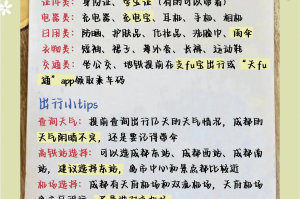 证件类：身份证、学生证（有的可以带着）
电器类：充电器、充电宝、耳机、手机、相机
日用类：防晒、护肤品、化妆品、洗脸巾、雨伞
衣物类：短袖、裙子、薄外套、长裤、运动鞋
交通类：坐公交、地铁提前在支fu宝出行或“天fu
通”app领取乘车码
出行小tips
查询天气：提前查询出行几天的天气情况，成都的
天气阴晴不定，还是要记得带伞
高铁站选择：可以选成都东站、成都西站、成都南
站，建议选择东站，离市中心和景点都比较近
机场选择：成都有天府机场和双流机场，天府机场